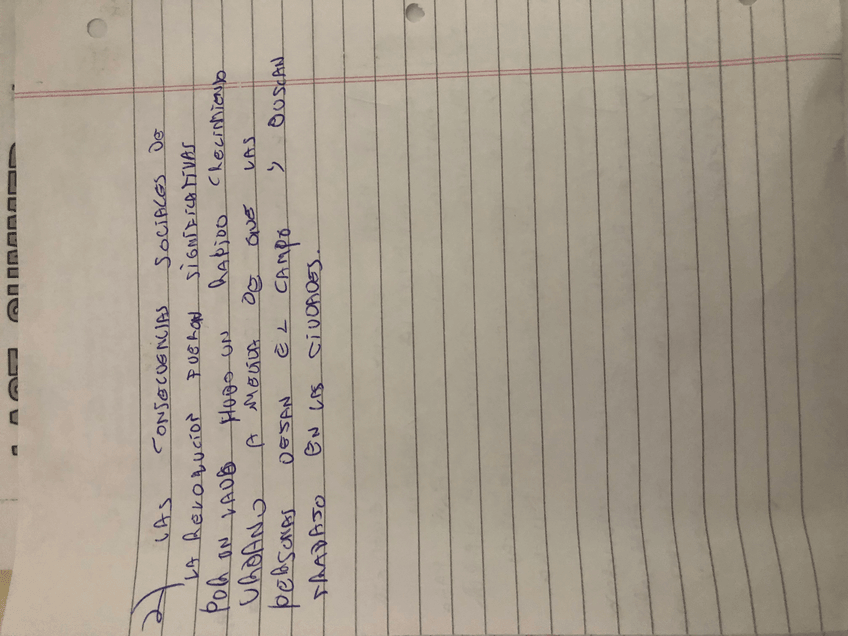 2) LAS CONSECUENCIAS SOCIALES DE
LA REVOLUCION FUERON SIGNIFICATIVAS
POR UN LADO HUBO UN RAPIDO CRECIMIENTO
URBANO A MEDIDA DE QUE LAS
PERSONAS DEJAN EL CAMPO Y BUSCAN
TRABAJO EN LAS CIUDADES.